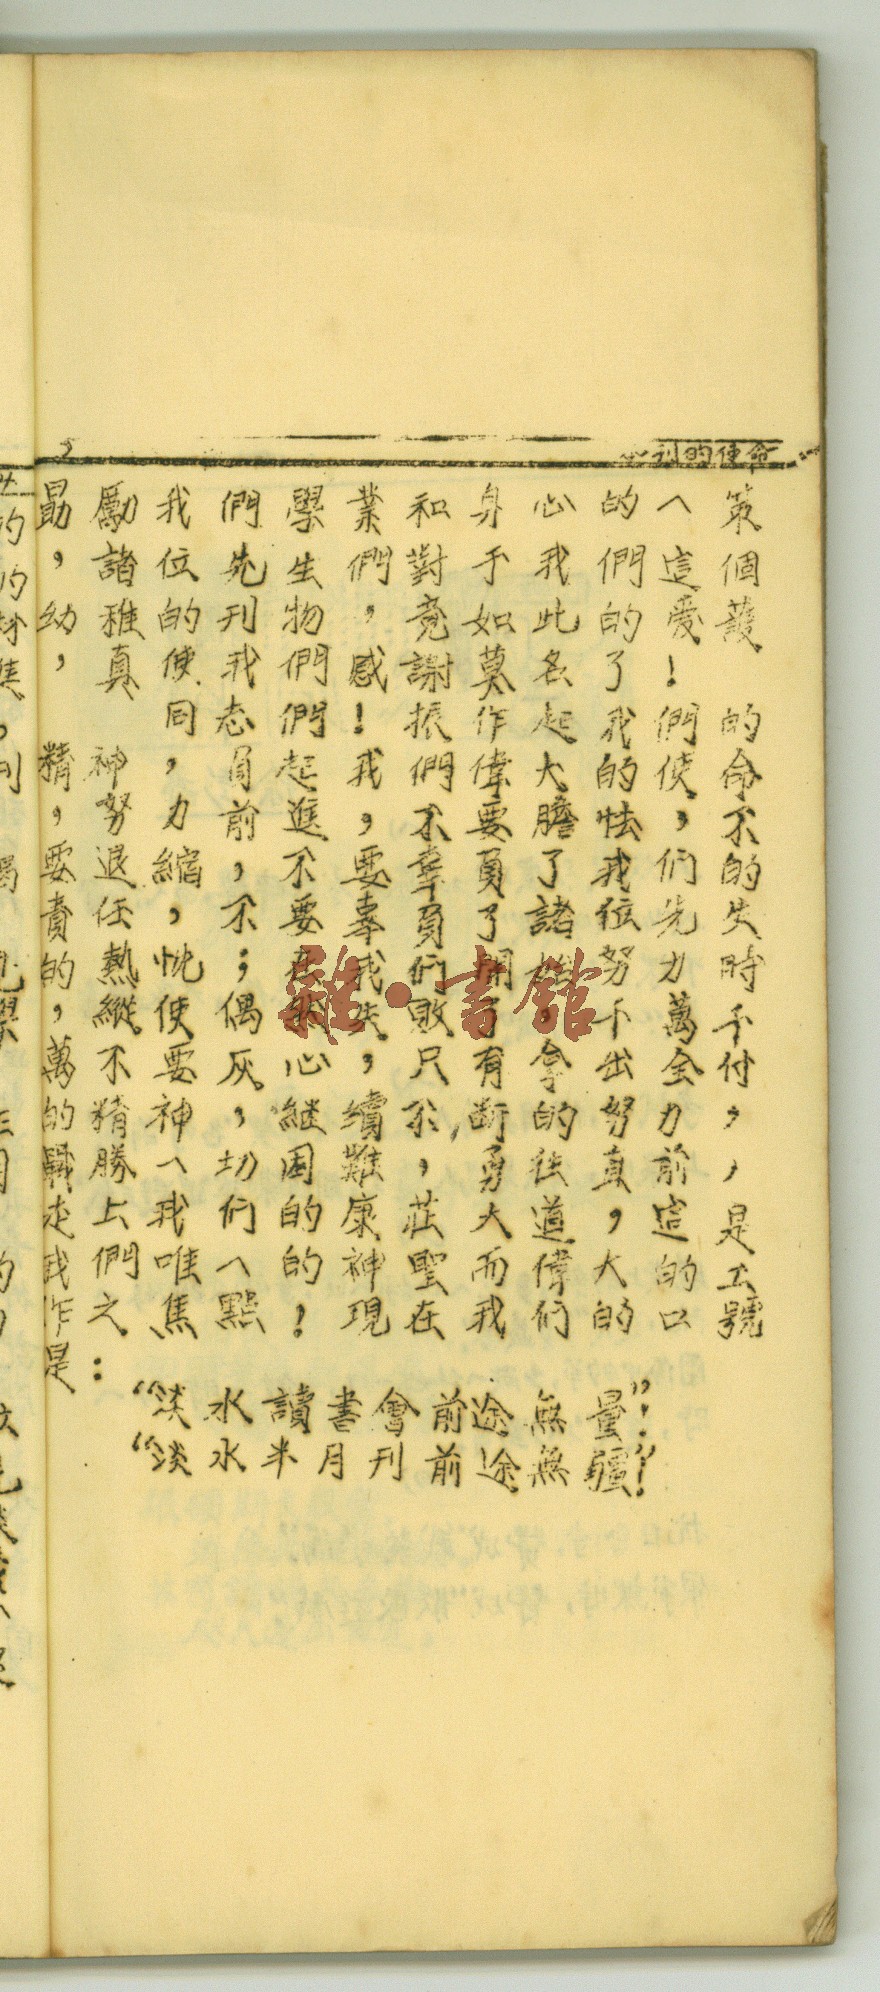 2 刊的使命
勖勵我們學業和身心的一策
，諸位先生們對于我們這個
幼稚的刊物，竟如此的愛護
，真使我們感謝莫名了！
同志們！振作起我們的
精神，負起我們偉大的使命
，努力前進，不要膽怯，不
要退縮，不要辜負了我们的
責任，不要辜負了諸位先失
的熱忱；在我们開始努力時
，縱使偶然失敗了，千萬千
萬不要灰心，只有拿出全付
的精神，繼續不斷的努力，
戰勝一切困難，勇往直前，
走上我们的康莊大道，這是
我們唯一的神聖而偉大的工
作之焦點！現在我们的口號
是：
“淡水讀書會前途無量”！
“淡水半月刊前途無疆”！
雜·書館